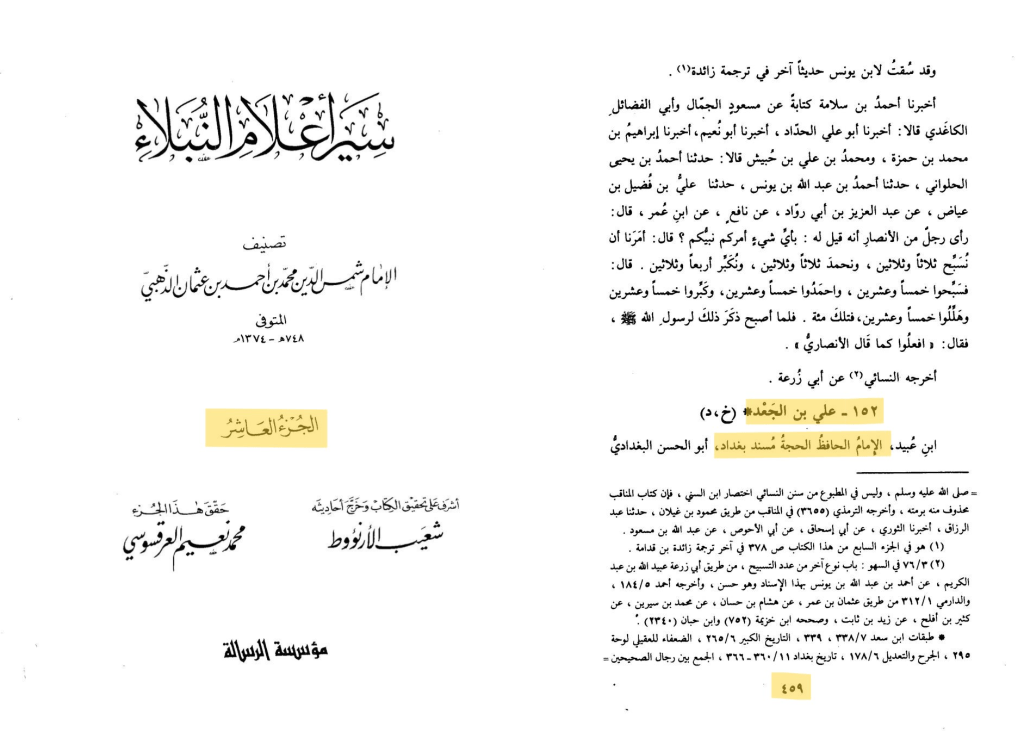 وقد سُقتُ لابن يونس حديثاً آخر في ترجمة زائدة(١) .
أخبرنا أحمدُ بن سلامة كتابةً عن مسعودٍ الجمّال وأبي الفضائلِ
الكاغَدي قالا: أخبرنا أبو علي الحدّاد ، أخبرنا أبو نُعيم، أخبرنا إبراهيمُ بن
محمد بن حمزة ، ومحمدُ بن علي بن حُبيش قالا: حدثنا أحمدُ بن يحيى
الحلواني ، حدثنا أحمدُ بن عبد الله بن يونس ، حدثنا عليُّ بن فُضيل بن
عياض ، عن عبد العزيز بن أبي روّاد ، عن نافعٍ ، عن ابنِ عُمر ، قال:
رأى رجلٌ من الأنصارِ أنه قيل له : بأيِّ شيءٍ أمركم نبيُّكم ؟ قال: أمَرَنا أن
نُسَبِّح ثلاثاً وثلاثين ، ونحمدَ ثلاثاً وثلاثين ، ونُكَبِّر أربعاً وثلاثين . قال:
فسَبِّحوا خمساً وعشرين ، واحمَدُوا خمساً وعشرين، وكَبِّروا خمساً وعشرين
وهَلِّلُوا خمساً وعشرين، فتلكَ مئة . فلما أصبح ذكَرَ ذلكَ لرسولِ الله ﷺ ،
فقال: « افعلُوا كما قَال الأنصاريُّ » .
أخرجه النسائي(٢) عن أبي زُرعة .
١٥٢ - علي بن الجَعْد* (خ،د)
ابنِ عُبيد، الإمامُ الحافظُ الحجةُ مُسند بغداد، أبو الحسن البغداديُّ
= صلى الله عليه وسلم ، وليس في المطبوع من سنن النسائي اختصار ابن السني ، فإن كتاب المناقب
محذوف منه برمته ، وأخرجه الترمذي (٣٦٥٥) في المناقب من طريق محمود بن غيلان ، حدثنا عبد
الرزاق ، أخبرنا الثوري ، عن أبي إسحاق ، عن أبي الأحوص ، عن عبد الله بن مسعود .
(١) هو في الجزء السابع من هذا الكتاب ص ٣٧٨ في آخر ترجمة زائدة بن قدامة .
(٢) ٧٦/٣ في السهو : باب نوع آخر من عدد التسبيح ، من طريق أبي زرعة عبيد الله بن عبد
الكريم ، عن أحمد بن عبد الله بن يونس بهذا الإسناد وهو حسن ، وأخرجه أحمد ١٨٤/٥ ،
والدارمي ٣١٢/١ من طريق عثمان بن عمر ، عن هشام بن حسان ، عن محمد بن سيرين ، عن
كثير بن أفلح ، عن زيد بن ثابت ، وصححه ابن خزيمة (٧٥٢) وابن حبان (٢٣٤٠) .
* طبقات ابن سعد ٣٣٨/٧ ، ٣٣٩ ، التاريخ الكبير ٢٦٥/٦ ، الضعفاء للعقيلي لوحة
٢٩٥ ، الجرح والتعديل ١٧٨/٦ ، تاريخ بغداد ٣٦٠/١١ - ٣٦٦ ، الجمع بين رجال الصحيحين =
٤٥٩
سير أعلام النبلاء
تصنيف
الإمام شمس الدين محمد بن أحمد بن عثمان الذهبي
المتوفى
٧٤٨هـ - ١٣٧٤م
الجزء العاشر
أشرف على تحقيق الكتاب وخرج أحاديثه
شعيب الأرنؤوط
حقق هذا الجزء
محمد نعيم العرقسوسي
مؤسسة الرسالة